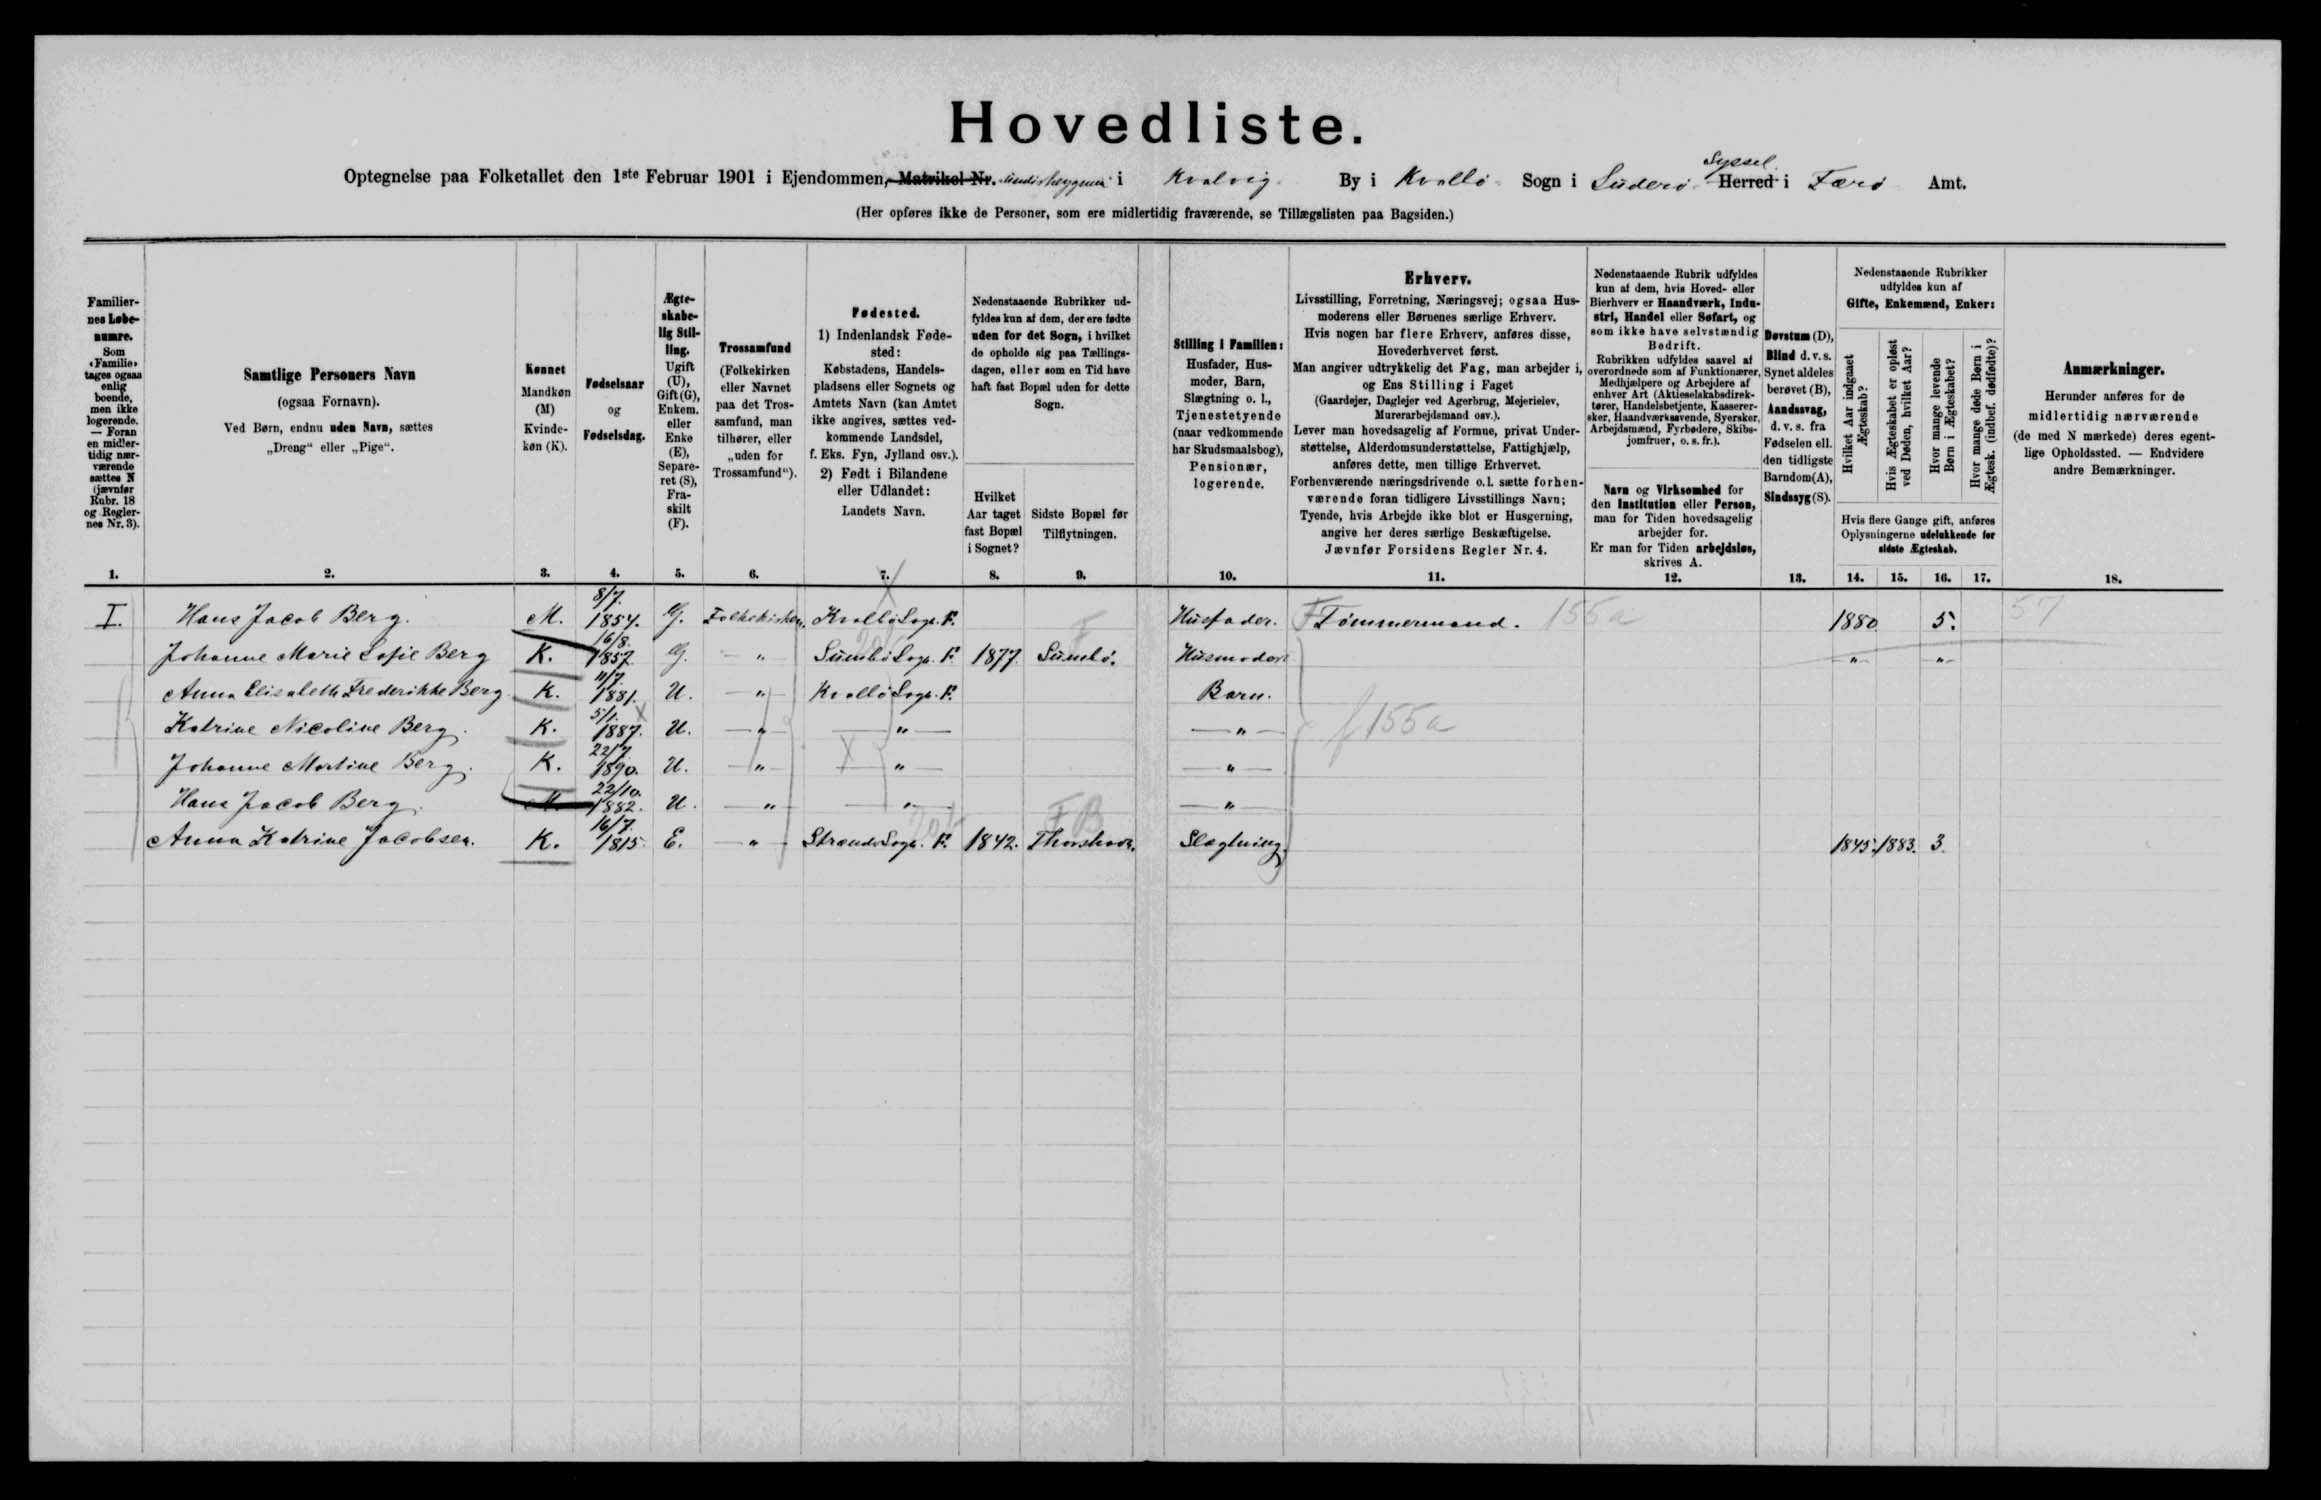 Hovedliste.
Optegnelse paa Folketallet den 1ste Februar 1901 i Ejendommen, Matrikel Nr. i Kvalvig By i Kvalbö Sogn i Süderö Syssel Herred i Færö Amt.
(Her opføres ikke de Personer, som ere midlertidig fraværende, se Tillægslisten paa Bagsiden.)
Familiernes Løbenumre.
Som «Familie» tages ogsaa enlig boende, men ikke logerende. — Foran en midlertidig nærværende sættes N (jævnfør Rubr. 18 og Reglernes Nr. 3).
Samtlige Personers Navn
(ogsaa Fornavn).
Ved Børn, endnu uden Navn, sættes
„Dreng“ eller „Pige“.
Kønnet
Mandkøn (M)
Kvindekøn (K).
Fødselsaar
og
Fødselsdag.
Ægteskabelig Stilling.
Ugift (U), Gift (G), Enkem. eller Enke (E), Separeret (S), Fraskilt (F).
Trossamfund
(Folkekirken eller Navnet paa det Trossamfund, man tilhører, eller „uden for Trossamfund“).
Fødested.
1) Indenlandsk Fødested:
Købstadens, Handelspladsens eller Sognets og Amtets Navn (kan Amtet ikke angives, sættes vedkommende Landsdel, f. Eks. Fyn, Jylland osv.).
2) Født i Bilandene eller Udlandet:
Landets Navn.
Nedenstaaende Rubrikker udfyldes kun af dem, der ere fødte uden for det Sogn, i hvilket de opholde sig paa Tællingsdagen, eller som en Tid have haft fast Bopæl uden for dette Sogn.
Hvilket Aar taget fast Bopæl i Sognet?
Sidste Bopæl før Tilflytningen.
Stilling i Familien:
Husfader, Husmoder, Barn, Slægtning o. l., Tjenestetyende (naar vedkommende har Skudsmaalsbog), Pensionær, logerende.
Erhverv.
Livsstilling, Forretning, Næringsvej; ogsaa Husmoderens eller Børnenes særlige Erhverv.
Hvis nogen har flere Erhverv, anføres disse, Hovederhvervet først.
Man angiver udtrykkelig det Fag, man arbejder i, og Ens Stilling i Faget
(Gaardejer, Daglejer ved Agerbrug, Mejerielev, Murerarbejdsmand osv.).
Lever man hovedsagelig af Formue, privat Understøttelse, Alderdomsunderstøttelse, Fattighjælp, anføres dette, men tillige Erhvervet.
Forhenværende næringsdrivende o.l. sætte forhenværende foran tidligere Livsstillings Navn;
Tyende, hvis Arbejde ikke blot er Husgerning, angive her deres særlige Beskæftigelse.
Jævnfør Forsidens Regler Nr. 4.
Nedenstaaende Rubrik udfyldes kun af dem, hvis Hoved- eller Bierhverv er Haandværk, Industri, Handel eller Søfart, og som ikke have selvstændig Bedrift.
Rubrikken udfyldes saavel af overordnede som af Funktionærer, Medhjælpere og Arbejdere af enhver Art (Aktieselskabsdirektører, Handelsbetjente, Kasserersker, Haandværkssvende, Syersker, Arbejdsmænd, Fyrbødere, Skibsjomfruer, o. s. fr.).
Navn og Virksomhed for den Institution eller Person, man for Tiden hovedsagelig arbejder for.
Er man for Tiden arbejdsløs, skrives A.
Døvstum (D), Blind d. v. s. Synet aldeles berøvet (B), Aandssvag, d. v. s. fra Fødselen ell. den tidligste Barndom (A), Sindssyg (S).
Nedenstaaende Rubrikker udfyldes kun af
Gifte, Enkemænd, Enker:
Hvilket Aar indgaaet Ægteskab?
Hvis Ægteskabet er opløst ved Døden, hvilket Aar?
Hvor mange levende Børn i Ægteskabet?
Hvor mange døde Børn i Ægtesk. (indbef. dødfødte)?
Hvis flere Gange gift, anføres Oplysningerne udelukkende for sidste Ægteskab.
Anmærkninger.
Herunder anføres for de midlertidig nærværende (de med N mærkede) deres egentlige Opholdssted. — Endvidere andre Bemærkninger.
1. 2. 3. 4. 5. 6. 7. 8. 9. 10. 11. 12. 13. 14. 15. 16. 17. 18.
I. Hans Jacob Berg. M. 8/7. 1854. G. Folkekirken. Kvalbö Sogn. F. Husfader. F Tömmermand. 155a 1880 5. 57
Johanne Marie Sofie Berg K. 16/8. 1857. G. " Sumbö Sogn. F. 1877. Sümbö. F Husmoder " "
Anna Elisabeth Frederikke Berg K. 11/7. 1881. U. " Kvalbö Sogn. F. Barn.
Katrine Nicoline Berg. K. 5/1. 1887. U. " " " f 155a
Johanne Martine Berg. K. 22/7 1890. U. " " "
Hans Jacob Berg. M. 22/10. 1882. U. " " "
Anna Katrine Jacobsen. K. 16/7. 1815. E. " Strands Sogn. F. 1842. Thorshavn. FB Slægtning. 1845. 1883. 3.